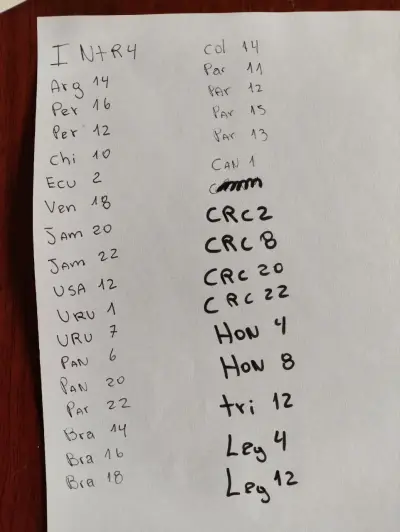 INtR4
Arg 14
Per 16
Per 12
Chi 10
Ecu 2
Ven 18
JAM 20
JAM 22
USA 12
URU 1
URU 7
PAN 6
PAN 20
Par 22
Bra 14
Bra 16
Bra 18
Col 14
Par 11
PAr 12
PAr 15
PAr 13
CAN 1
CRC2
CRC 8
CRC 20
CRC 22
HON 4
HON 8
tri 12
Leg 4
Leg 12